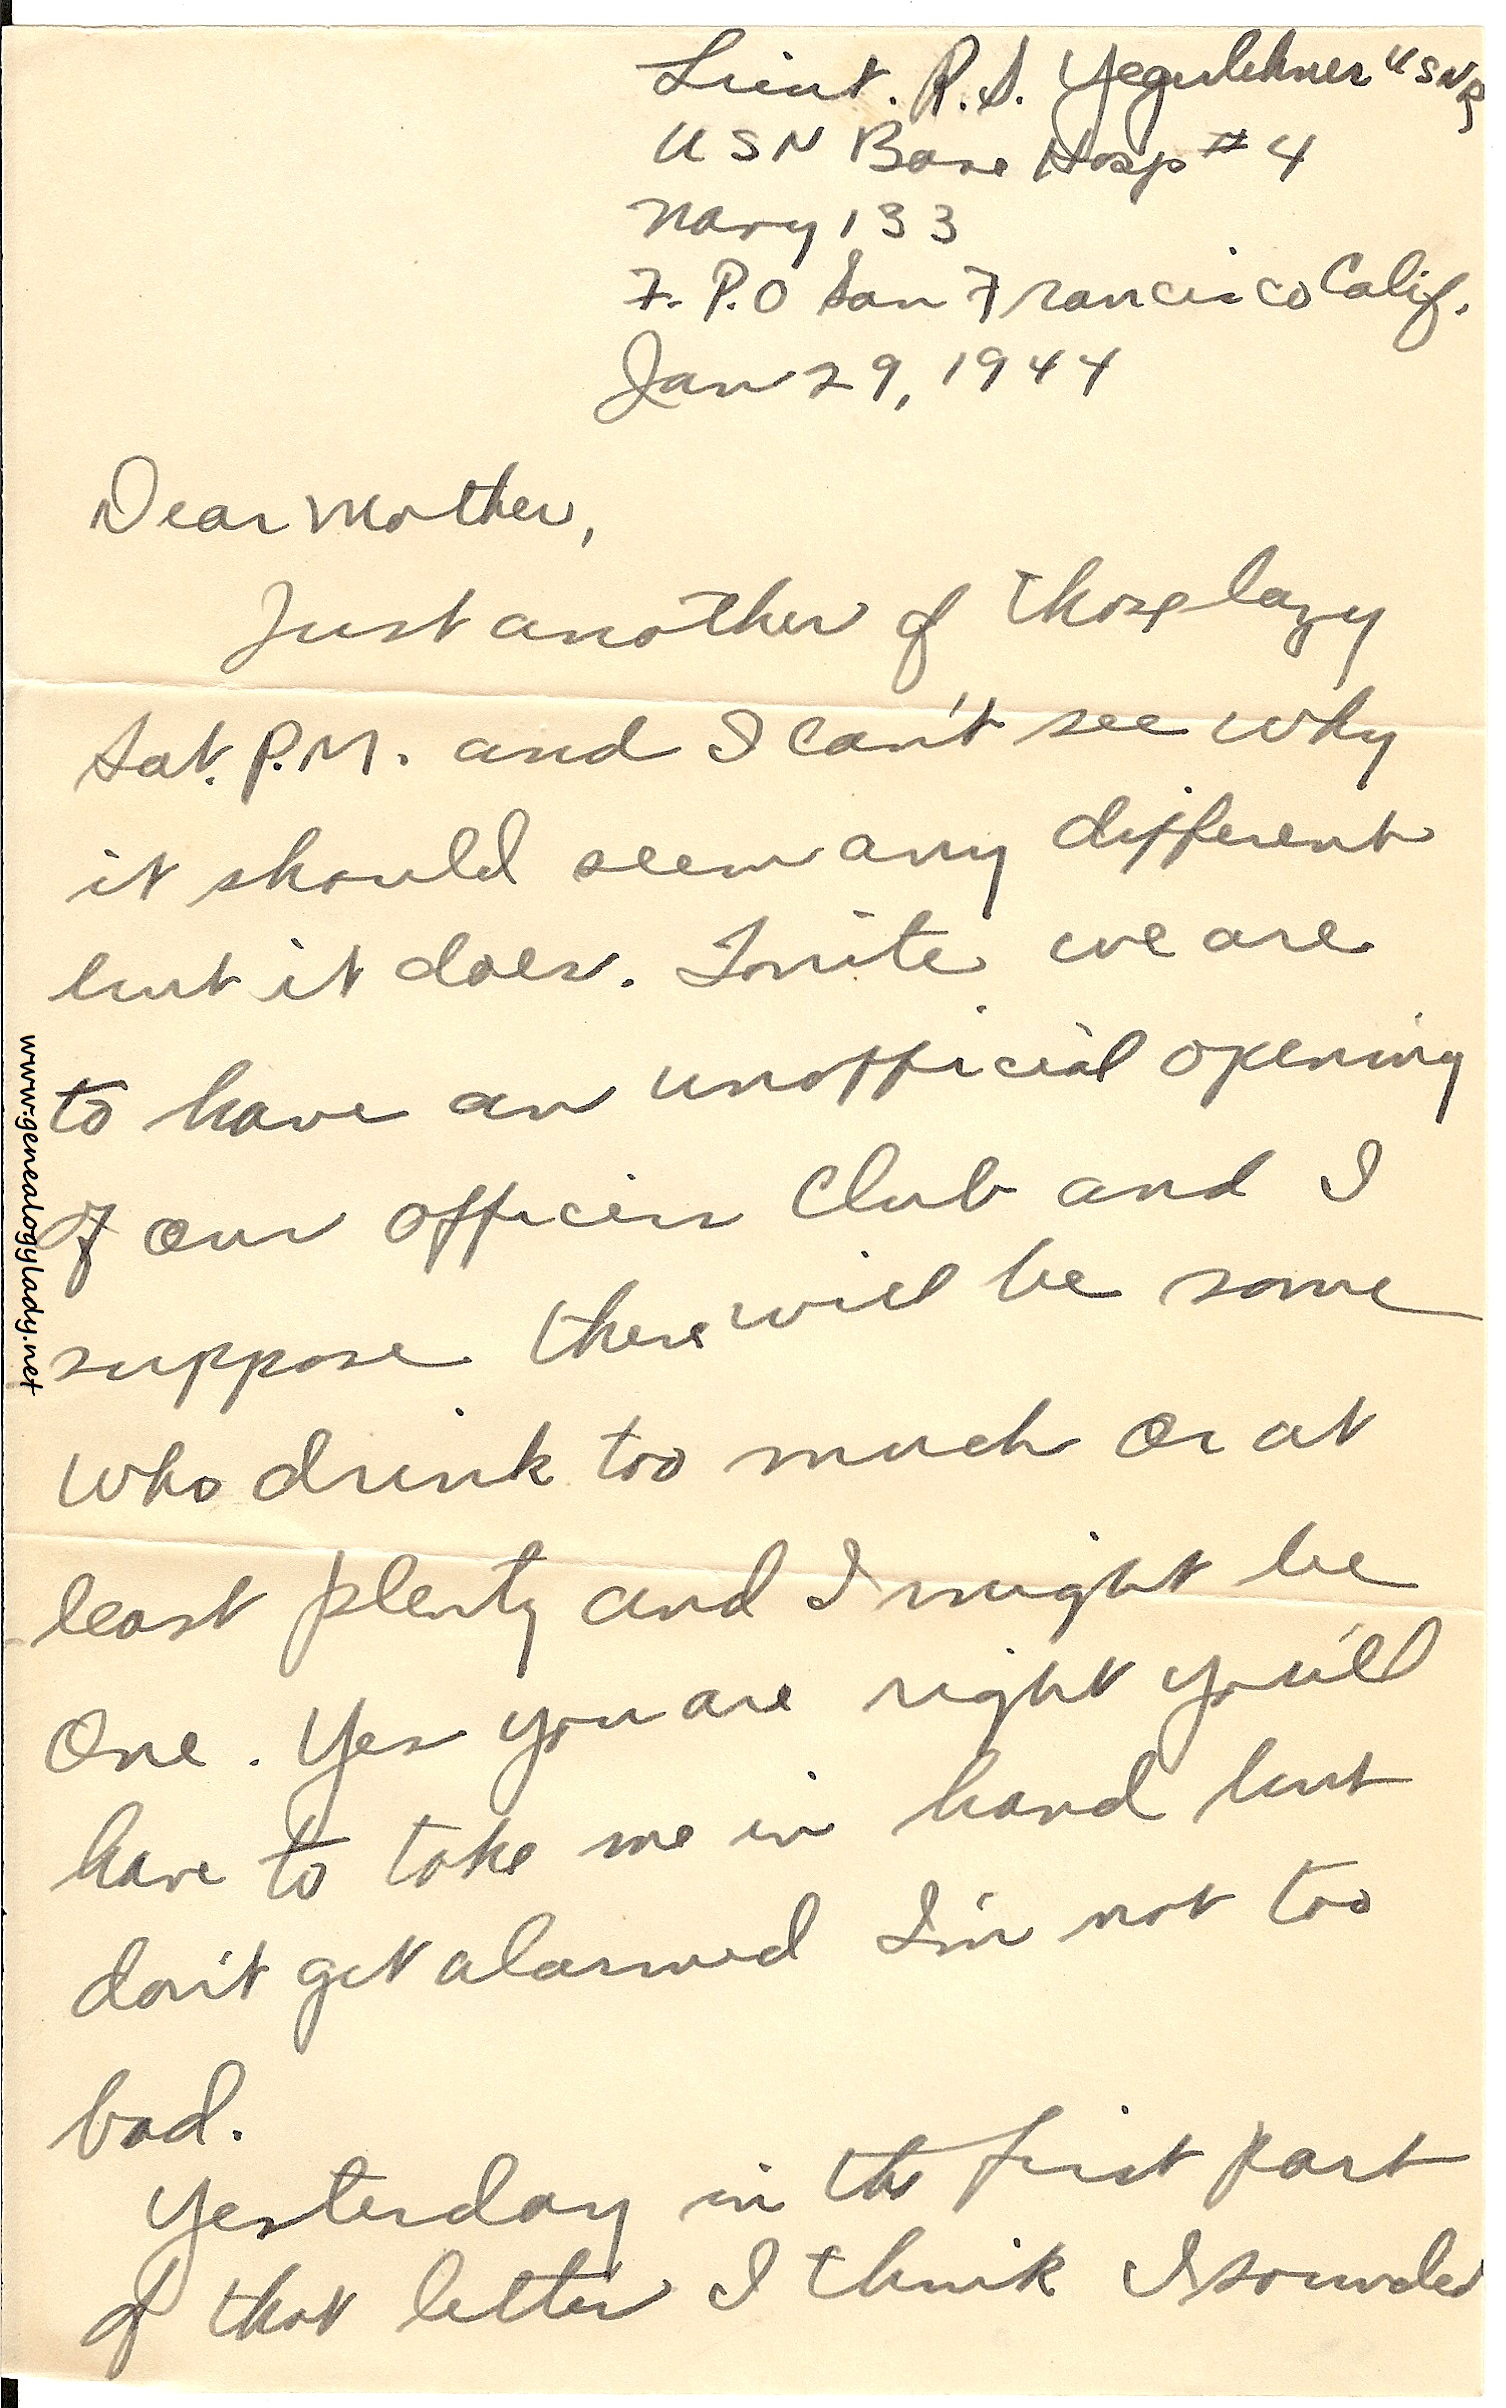 Lieut. R.S. Yegerlehner USNR
USN Base Hosp #4
Navy 133
F.P.O San Francisco Calif.
Jan 29, 1944
Dear Mother,
Just another of those lazy
Sat. P.M. and I can't see why
it should seem any different
but it does. Tonite we are
to have an unofficial opening
of our officers Club and I
suppose there will be some
who drink too much or at
least plenty and I might be
one. Yes you are right you'll
have to take me in hand but
don't get alarmed I'm not too
bad.
Yesterday in the first part
of that letter I think I sounded
www.genealogylady.net